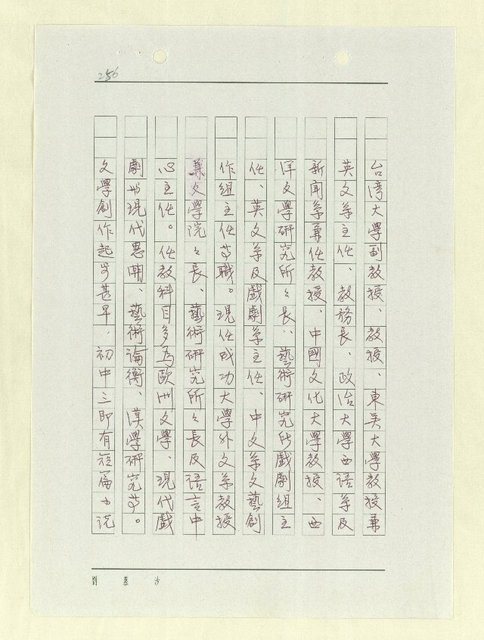 256
台灣大學副教授、教授、東吳大學教授兼
英文系主任、教務長、政治大學西語系及
新聞系兼任教授、中國文化大學教授、西
洋文學研究所所長、藝術研究所戲劇組主
任、英文系及戲劇系主任、中文系文藝創
作組主任等職。現任成功大學外文系教授
兼文學院々長、藝術研究所々長及語言中
心主任。任教科目多為歐洲文學、現代戲
劇與現代思潮、藝術論衡、漢學研究等。
文學創作起步甚早,初中三即有短篇小說
劉慕沙